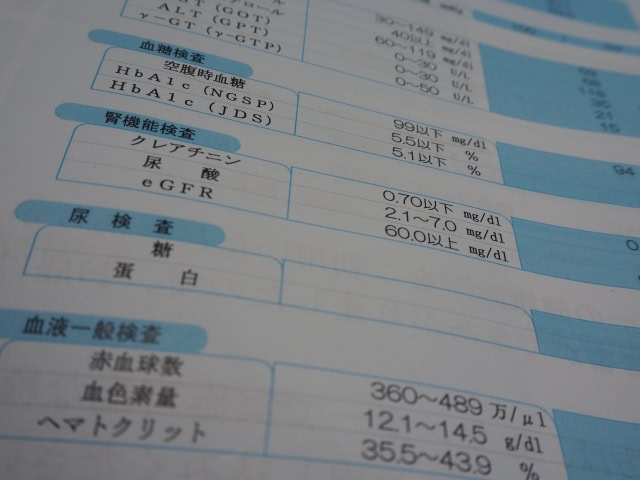 AST (GOT)
ALT (GPT)
γ-GT (γ-GTP)
30〜149 mg/dl
40以上 mg/dl
60〜119 mg/dl
0〜30 U/L
0〜30 U/L
0〜50 U/L
35
21
15
血糖検査
空腹時血糖 99以下 mg/dl 94
HbA1c (NGSP) 5.5以下 %
HbA1c (JDS) 5.1以下 %
腎機能検査
クレアチニン 0.70以下 mg/dl
尿酸 2.1〜7.0 mg/dl
eGFR 60.0以上 mg/dl
尿検査
糖
蛋白
血液一般検査
赤血球数 360〜489 万/μl
血色素量 12.1〜14.5 g/dl
ヘマトクリット 35.5〜43.9 %